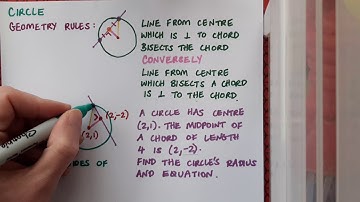 CIRCLE
GEOMETRY RULES:
LINE FROM CENTRE
WHICH IS ⊥ TO CHORD
BISECTS THE CHORD
CONVERSELY
LINE FROM CENTRE
WHICH BISECTS A CHORD
IS ⊥ TO THE CHORD
(2,-2)
(2,1)
A CIRCLE HAS CENTRE
(2,1). THE MIDPOINT OF
A CHORD OF LENGTH
4 IS (2,-2).
FIND THE CIRCLE'S RADIUS
AND EQUATION.
OF